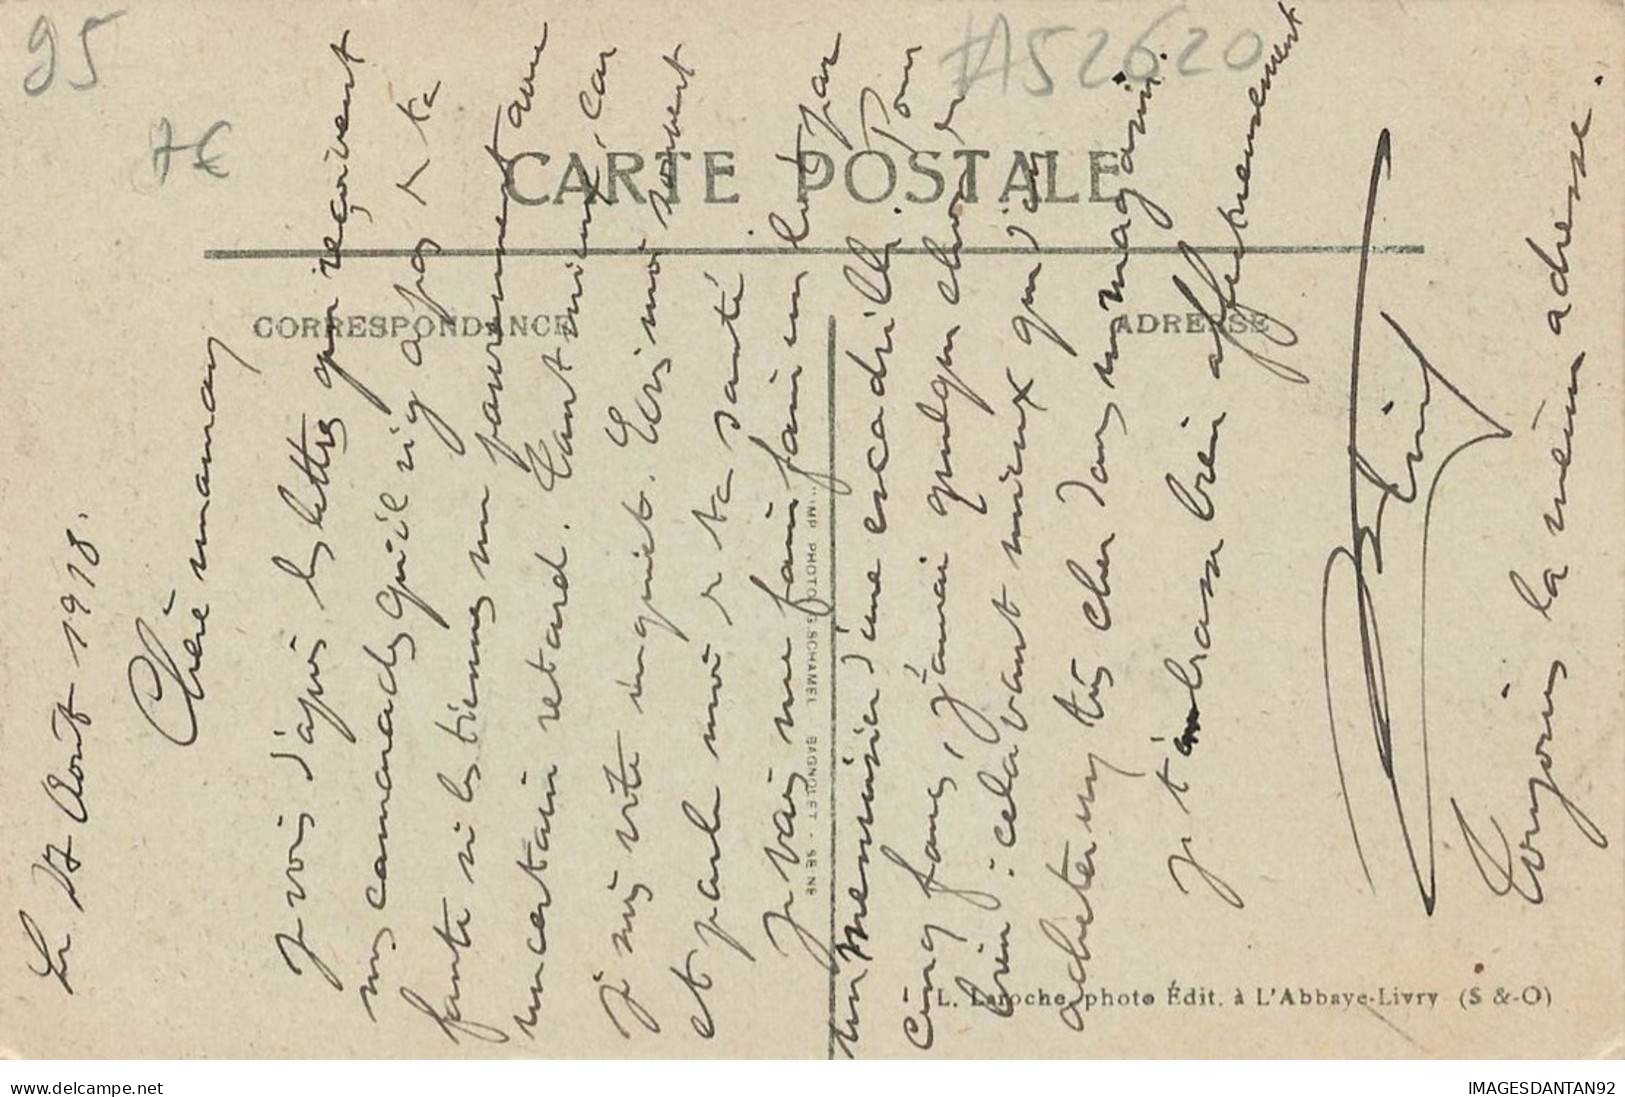 95
7€
#A52620
CARTE POSTALE
CORRESPONDANCE
ADRESSE
IMP. PHOTO G. SCHAMEL. BAGNOLET - SEINE
L. Laroche, photo Édit. à L'Abbaye-Livry (S &-O)
Le 27 Aout 1918.
Chère maman
Je vois d'après les lettres que reçoivent
mes camarades qu'il n'y a pas de ta
faute si les tiennes me parviennent avec
un certain retard. Tant mieux, car
je suis vite inquiet. Écris moi souvent
et parle moi de ta santé.
Je vais me faire faire un lit par
un menuisier d'une escadrille. Pour
cinq francs, j'aurai quelque chose de
bien : cela vaut mieux que d'en
acheter un très cher dans un magasin.
Je t'embrasse bien affectueusement
Toujours la même adresse.
www.delcampe.net
IMAGESDANTAN92